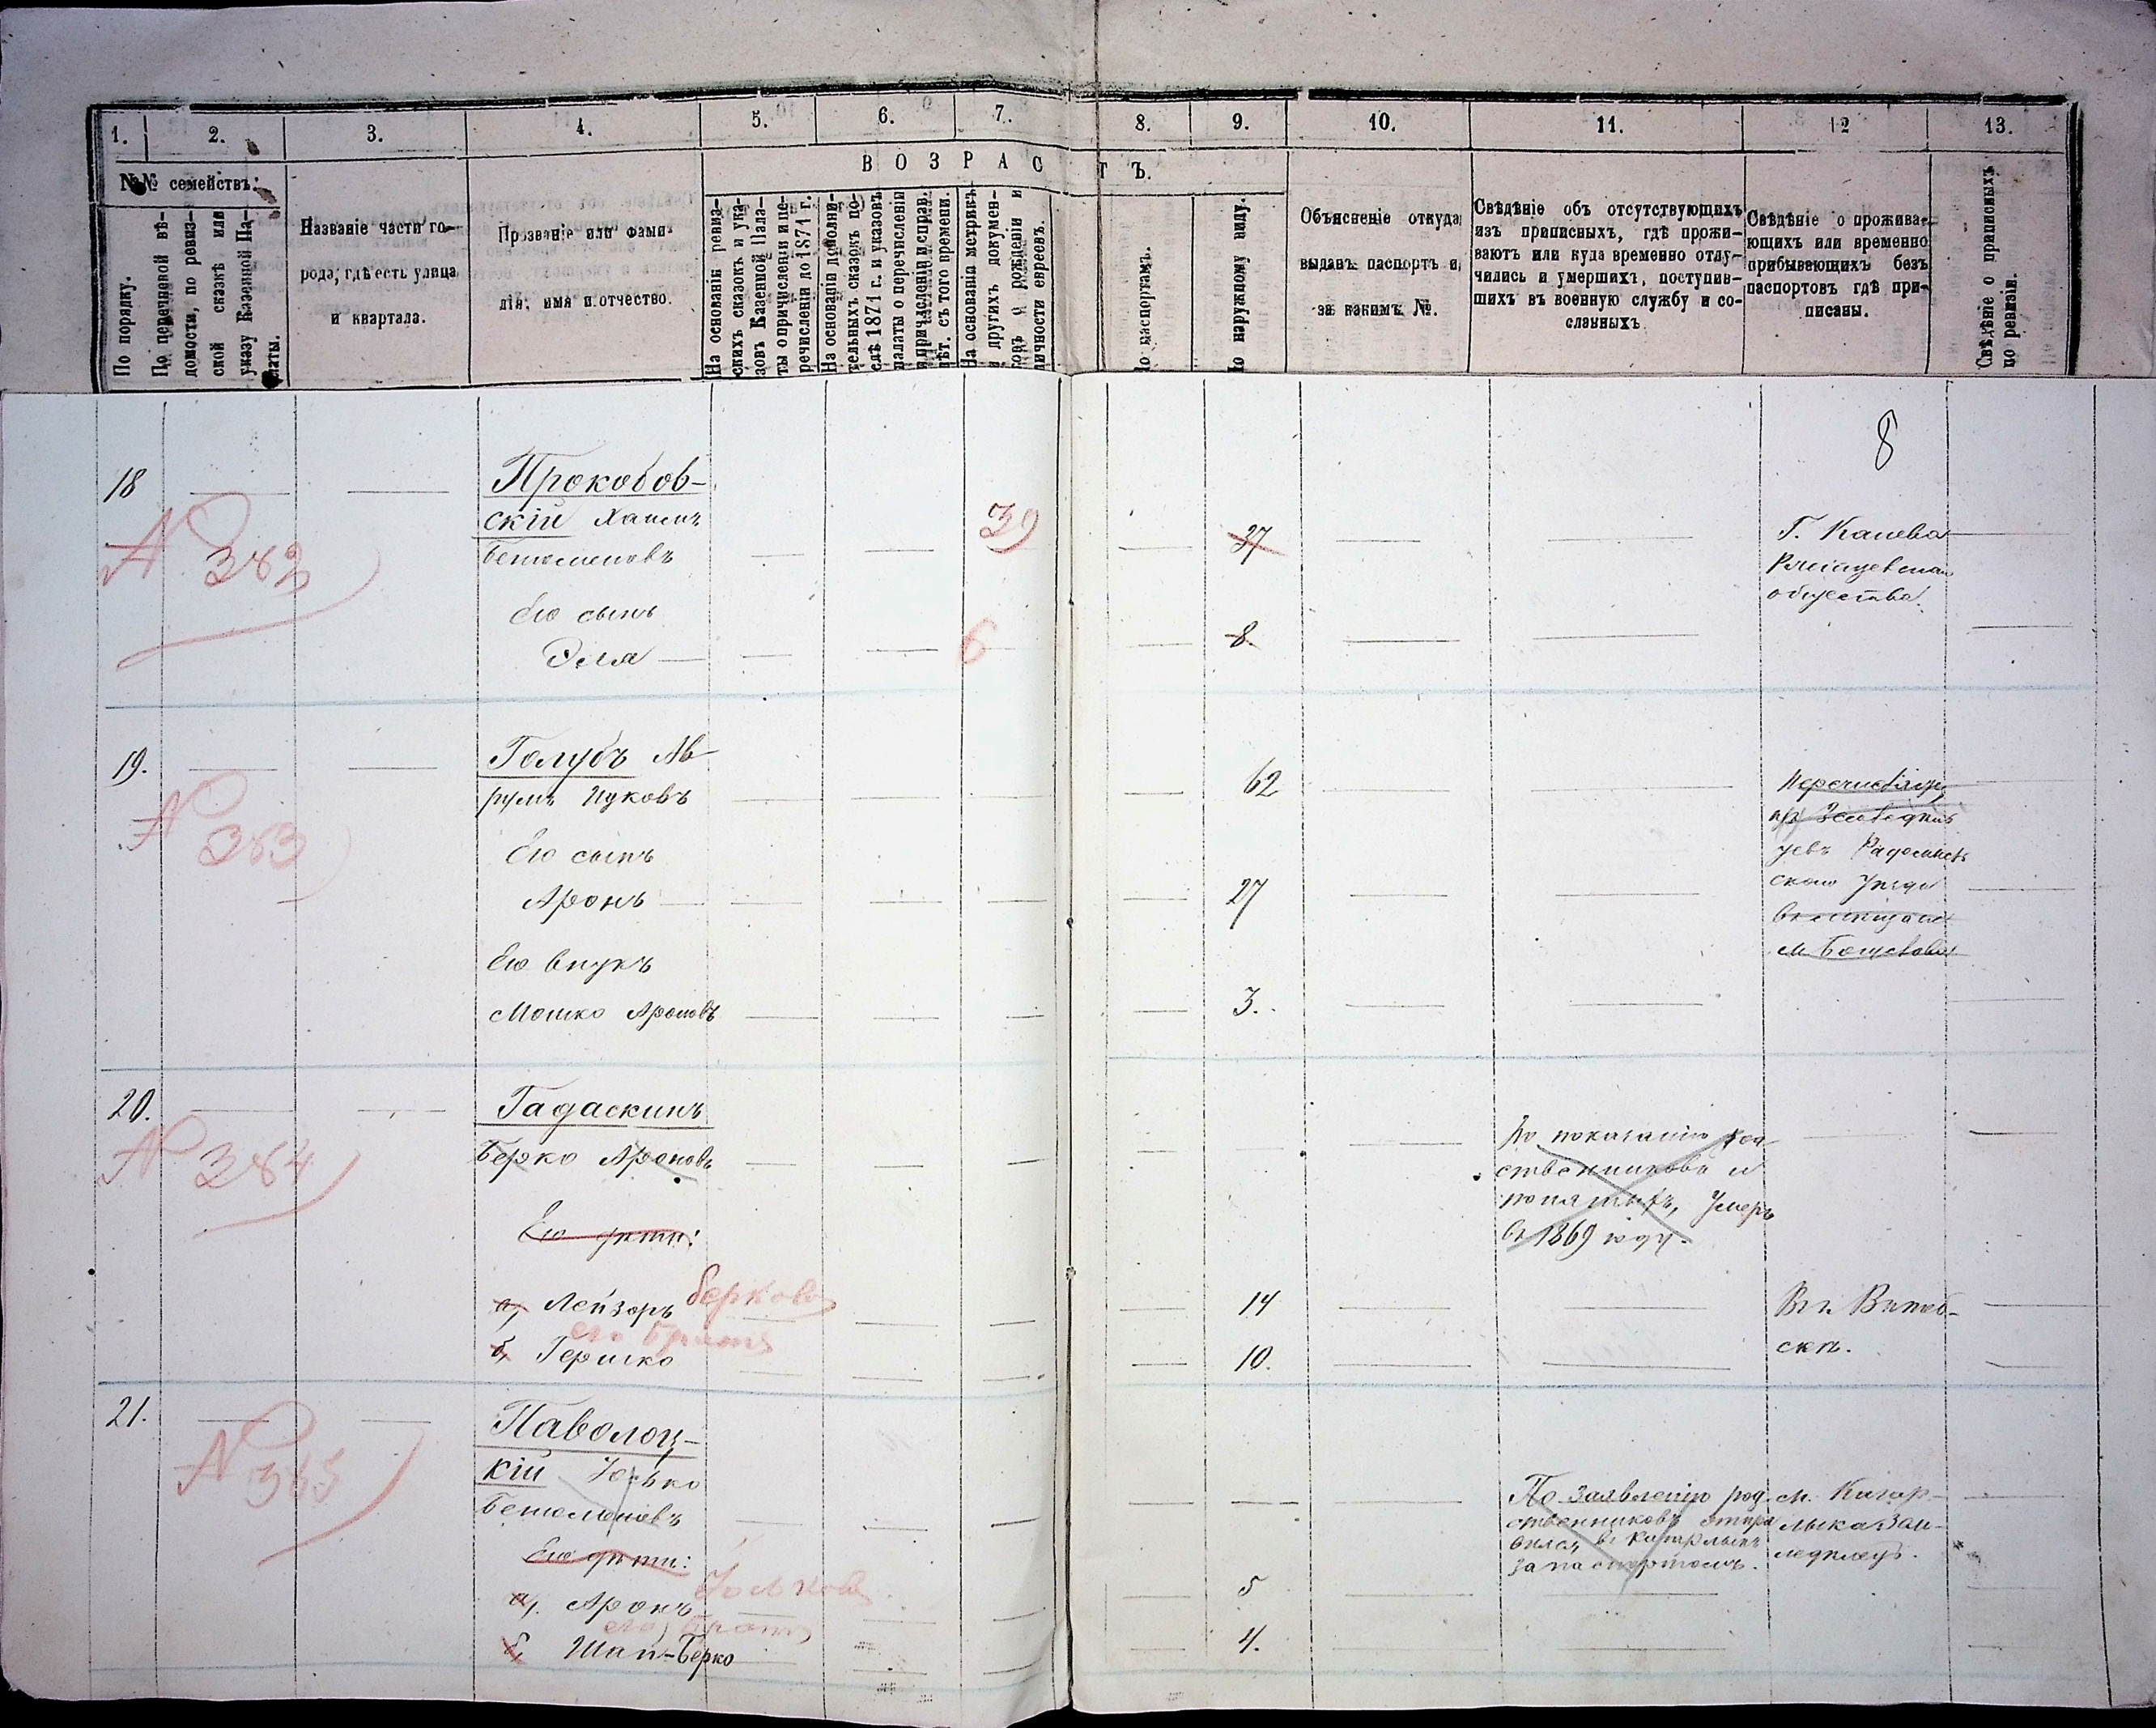 1. 2. 3. 4. 5. 6. 7. 8. 9. 10. 11. 12 13.
№№ семействъ:
ВОЗРАСТЪ.
По порядку.
По перечневой вѣ-
домости, по ревиз-
ской сказкѣ или
указу Казенной Па-
латы.
Названіе части го-
рода, гдѣ есть улица
и квартала.
Прозваніе или фами-
лія, имя и отчество.
На основаніи ревиз-
скихъ сказокъ и ука-
зовъ Казенной Пала-
ты о причисленіи и пе-
речисленіи до 1871 г.
На основаніи дополни-
тельныхъ сказокъ по-
слѣ 1871 г. и указовъ
палаты о перечисленіи
и причисленіи и справ.
лѣт. съ того времени.
На основаніи метрикъ
и другихъ докумен-
товъ о рожденіи и
личности евреевъ.
По паспортамъ.
По наружному виду.
Объясненіе откуда
выданъ паспортъ и
за какимъ №.
Свѣдѣніе объ отсутствующихъ
изъ приписныхъ, гдѣ прожи-
ваютъ или куда временно отлу-
чились и умершихъ, поступив-
шихъ въ военную службу и со-
сланныхъ
Свѣдѣніе о прожива-
ющихъ или временно
прибывающихъ безъ
паспортовъ гдѣ при-
писаны.
Свѣдѣніе о приписныхъ
по ревизіи.
8
18
№ 382
Прокобов-
скій Хаимъ
39 37 Г. Канева
общества.
Его сынъ
Эля 6 8.
19.
№ 383
Голубъ Ав-
румъ Ицковъ 62
Его сынъ
Аронъ 27
скаго Уѣзда
Его внукъ
Мошко Ароновъ 3.
20.
№ 384
Гадаскинъ
Берко Ароновъ
По показанію род-
ственниковъ и
понятыхъ, Умеръ
въ 1869 году.
Его дѣти:
а, Лейзоръ Берковъ 14 Въ г. Витеб-
его братъ
б, Гершко 10. скѣ.
21.
№ 385
Паволоц-
кій Йосько
По заявленію род-
ственниковъ отпра
вился въ Кагарлыкъ
за паспортомъ.
м. Кагар-
лыка
Его дѣти:
а, Аронъ 5
его братъ
б, Шая-Берко 4.